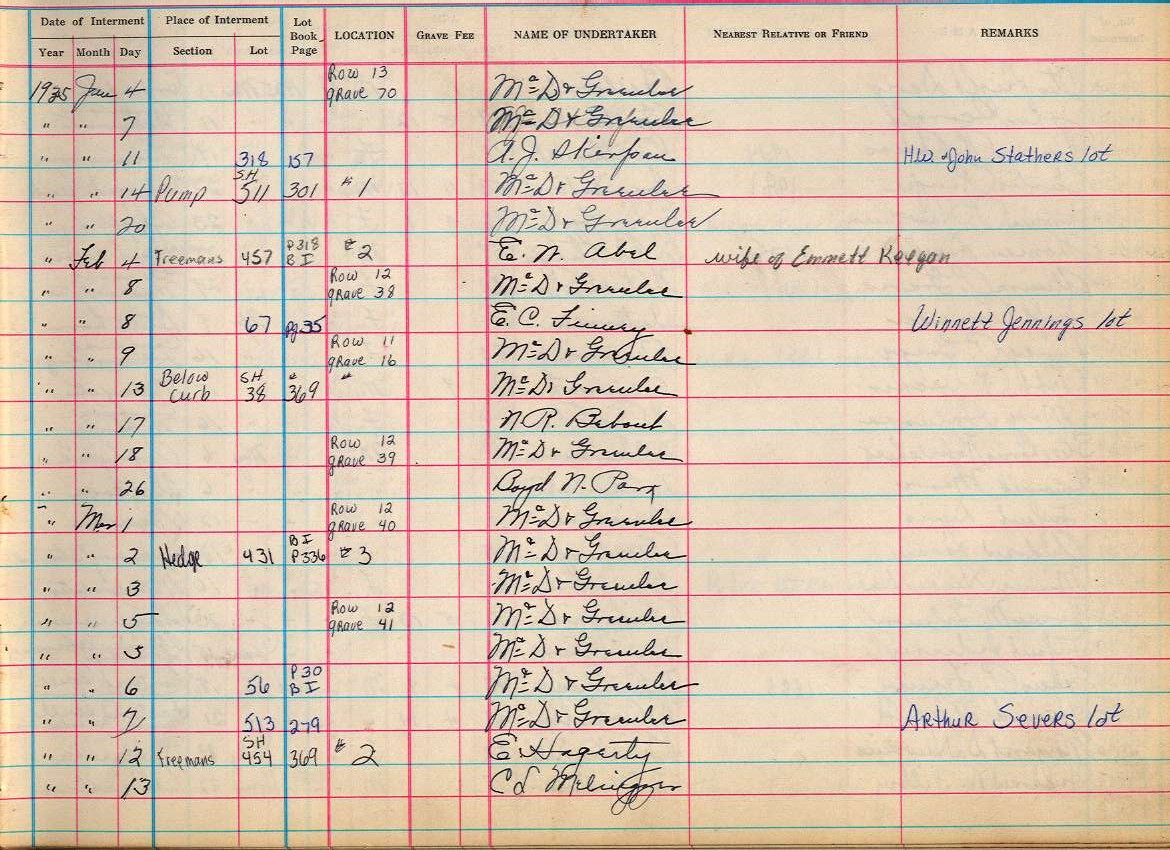 Date of Interment Place of Interment Lot Book Page LOCATION GRAVE FEE NAME OF UNDERTAKER NEAREST RELATIVE OR FRIEND REMARKS
Year Month Day Section Lot
1935 Jan 4 Row 13 grave 70 Mc D & Greenlee
" " 7 Mc D & Greenlee
" " 11 318 157 A. J. H.W. & John Stathers lot
" " 14 Pump SH 511 301 # 1 Mc D & Greenlee
" " 20 Mc D & Greenlee
" Feb 4 Freemans 457 P318 B I # 2 E. N. Abel wife of Emmett Keegan
" " 8 Row 12 grave 38 Mc D & Greenlee
" " 8 67 pg 35 E. C. Finney Winnett Jennings lot
" " 9 Row 11 grave 16 Mc D & Greenlee
" " 13 Below Curb SH 38 " 369 " Mc D & Greenlee
" " 17 N. R. Bebout
" " 18 Row 12 grave 39 Mc D & Greenlee
" " 26 Boyd N. Parx
" Mar 1 Row 12 grave 40 Mc D & Greenlee
" " 2 Hedge 431 B I P336 # 3 Mc D & Greenlee
" " 3 Mc D & Greenlee
" " 5 Row 12 grave 41 Mc D & Greenlee
" " 5 Mc D & Greenlee
" " 6 56 P30 B I Mc D & Greenlee
" " 7 513 279 Mc D & Greenlee Arthur Severs lot
" " 12 Freemans SH 454 369 # 2 E Hagerty
" " 13